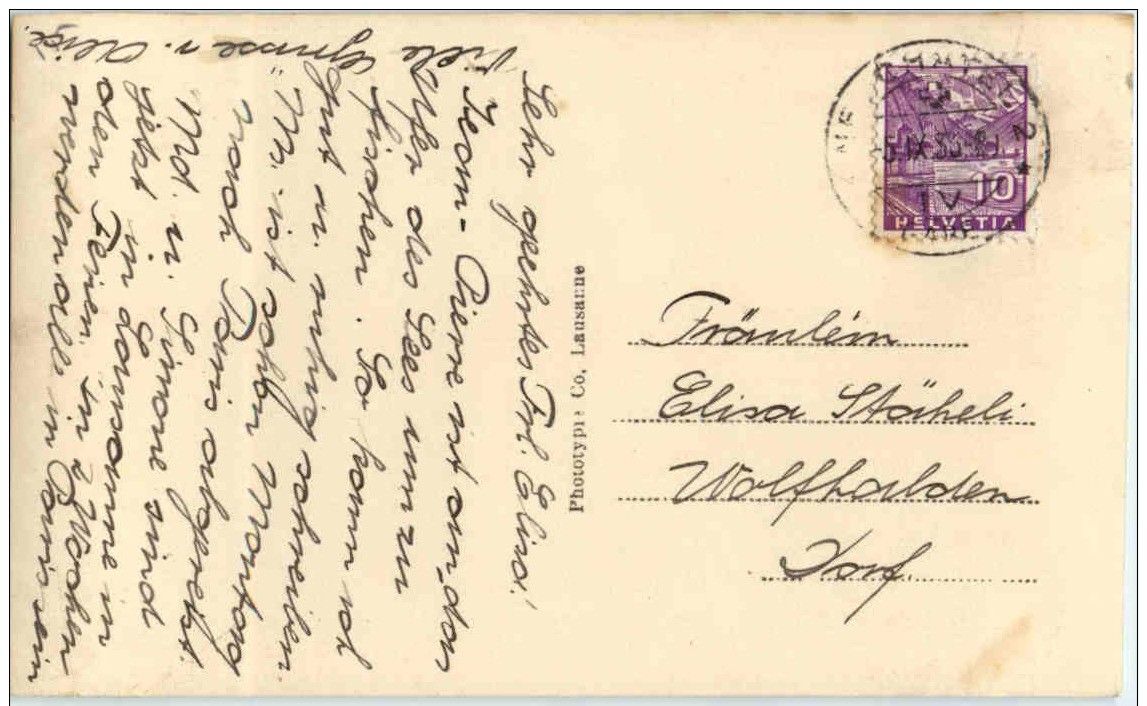 Sehr geehrtes Frl. Elisa!
Jean-Pierre ist an dan
Ufer des Sees um zu
fischen. So kann ich
gut u. ruhig schreiben.
M. ist schon Montag
nach Paris abgereist.
Md. u. Simone sind
jetzt in Lausanne in
den Ferien. In 2 Wochen
werden alle in Paris sein
Viele Grüsse v. Alice.
Phototypie Co, Lausanne
10
HELVETIA
IX
2
Fräulein
Elisa Stäheli
Wolfhalden
Dorf